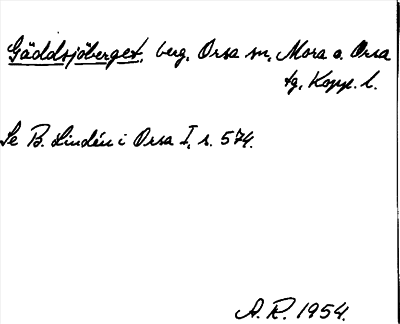 Gäddsjöberget, berg, Orsa sn, Mora o. Orsa
tg, Kopp. l.
Se B. Lindén i Orsa I, s. 574.
A. R. 1954.